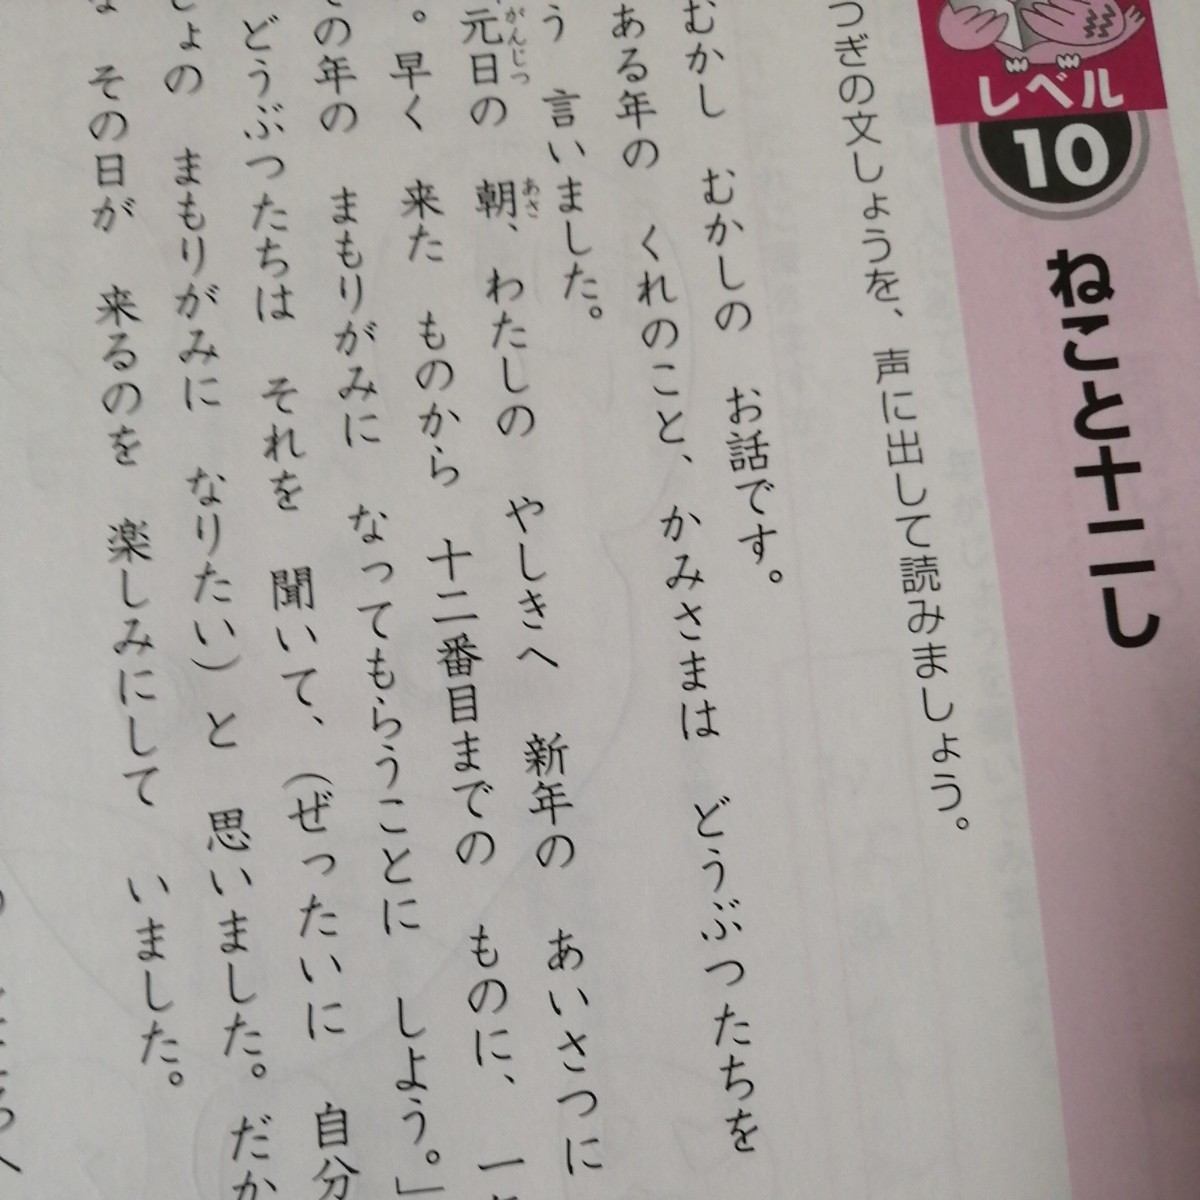 レベル
10
ねこと十二し
つぎの文しょうを、声に出して読みましょう。
むかし むかしの お話です。
ある年の くれのこと、かみさまは どうぶつたちを
う 言いました。
元日の 朝、わたしの やしきへ 新年の あいさつに
がんじつ
あさ
。早く 来た ものから 十二番目までの ものに、一
の年の まもりがみに なってもらうことに しよう。」
どうぶつたちは それを 聞いて、(ぜったいに 自分
しょの まもりがみに なりたい)と 思いました。だか
な その日が 来るのを 楽しみにして いました。